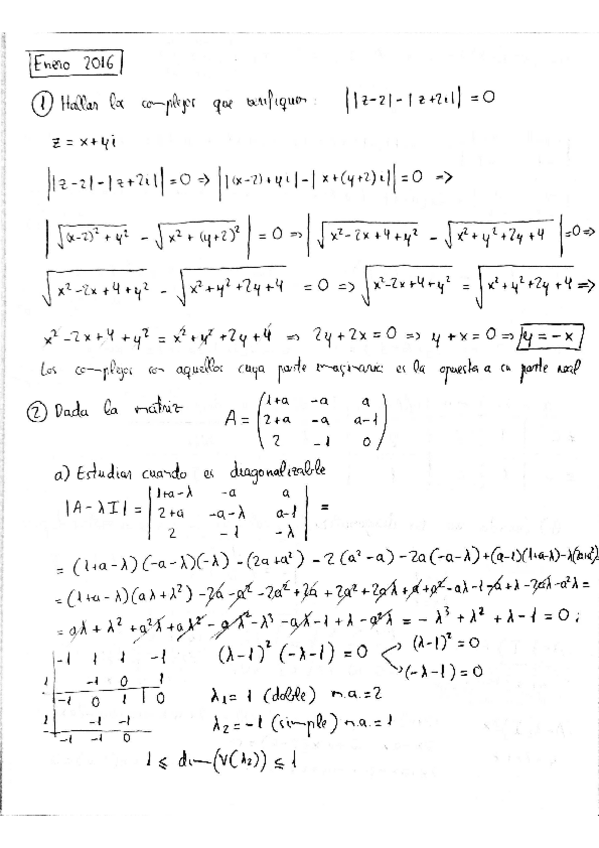 Enero 2016
① Hallar los complejos que verifiquen: ||z-2|-|z+2i||=0
z = x+yi
||z-2|-|z+2i||=0 => ||(x-2)+yi|-|x+(y+2)i||=0 =>
|√((x-2)²+y²) - √(x²+(y+2)²)| = 0 => |√(x²-2x+4+y²) - √(x²+y²+2y+4)|=0 =>
√(x²-2x+4+y²) - √(x²+y²+2y+4) = 0 => √(x²-2x+4+y²) = √(x²+y²+2y+4) =>
x²-2x+4+y² = x²+y²+2y+4 => 2y+2x=0 => y+x=0 => y=-x
Los complejos son aquellos cuya parte imaginaria es la opuesta a su parte real
② Dada la matriz A = (1+a -a a
2+a -a a-1
2 -1 0)
a) Estudiar cuando es diagonalizable
|A-λI| = |1+a-λ -a a
2+a -a-λ a-1
2 -1 -λ| =
= (1+a-λ)(-a-λ)(-λ) - (2a+a²) - 2(a²-a) - 2a(-a-λ) + (a-1)(1+a-λ)
= (1+a-λ)(aλ+λ²) - 2a - a² - 2a² + 2a + 2a² + 2aλ + a + a² - aλ - 1 - a + λ - 2aλ - a²λ =
= aλ + λ² + a²λ + aλ² - aλ² - λ³ - aλ - 1 + λ - a²λ = -λ³ + λ² + λ - 1 = 0;
-1 1 1 -1
1 -1 0 1
-1 0 1 0
1 -1 -1
-1 -1 0
(λ-1)² (-λ-1) = 0
(λ-1)² = 0
(-λ-1) = 0
λ₁ = 1 (doble) m.a.=2
λ₂ = -1 (simple) m.a.=1
1 ≤ dim(V(λ₂)) ≤ 1